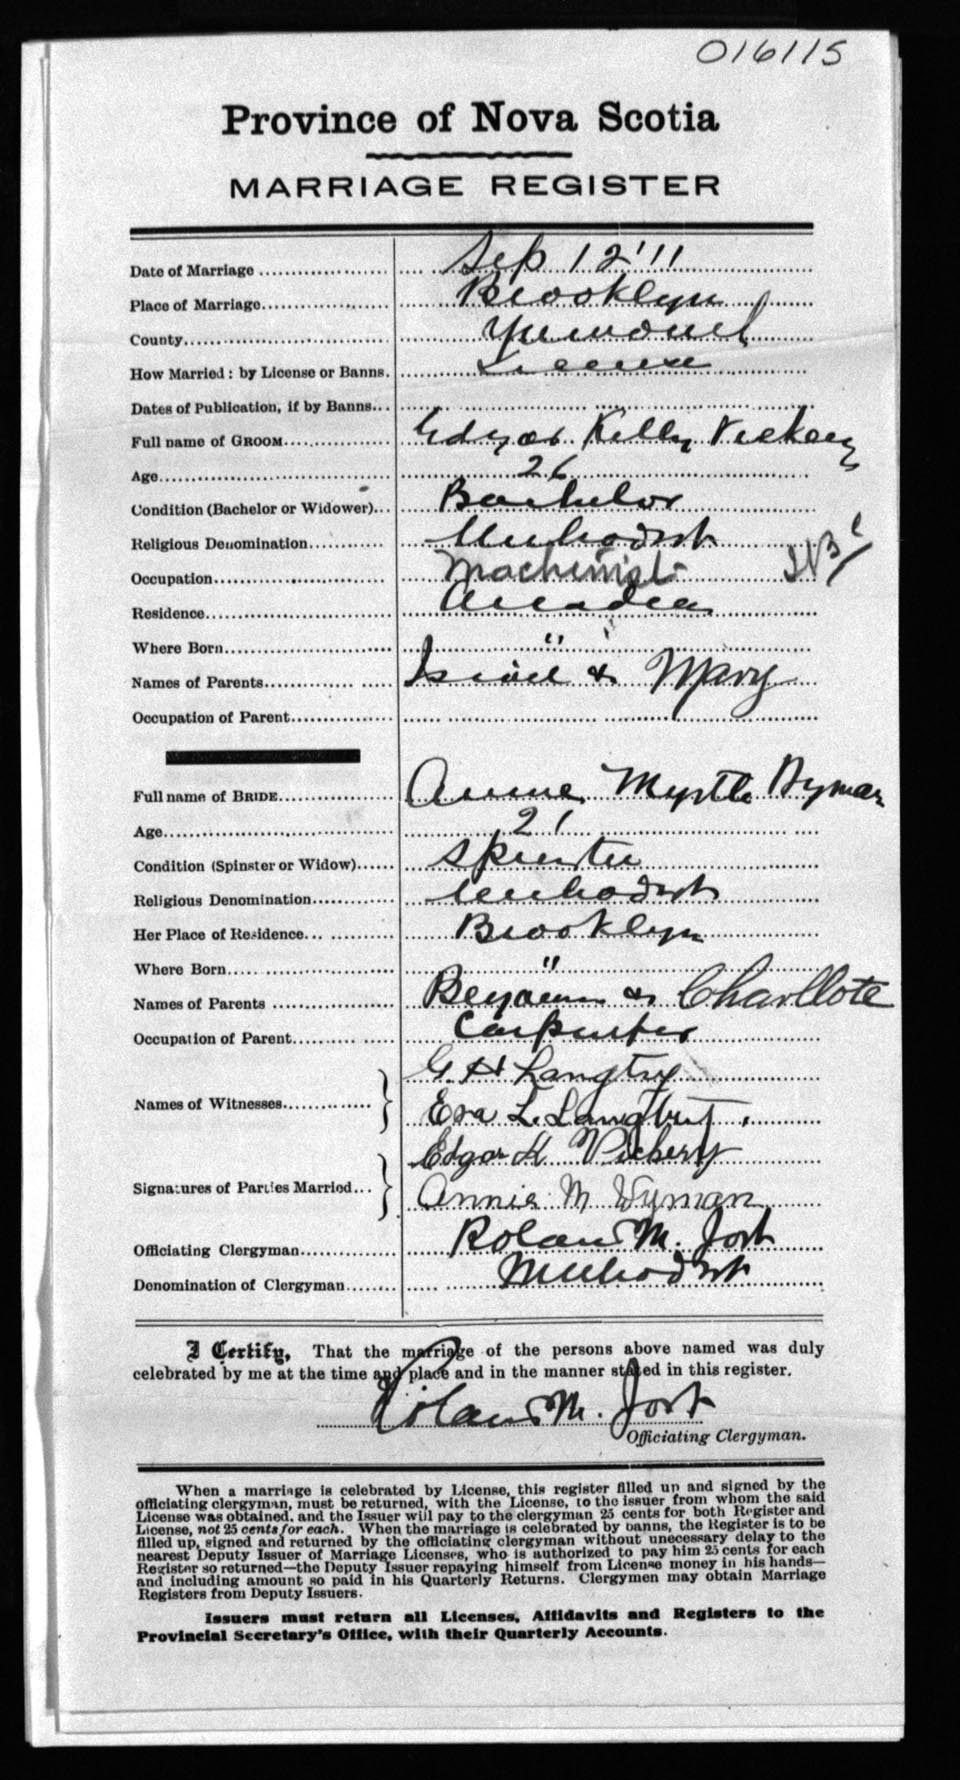 016115
Province of Nova Scotia
MARRIAGE REGISTER
Date of Marriage Sep 12 '11
Place of Marriage Brooklyn
County Yarmouth
How Married: by License or Banns. License
Dates of Publication, if by Banns
Full name of GROOM Edgar Kelly Vickery
Age 26
Condition (Bachelor or Widower) Bachelor
Religious Denomination Methodist
Occupation Machinist
Residence Arcadia
Where Born " "
Names of Parents Israel & Mary
Occupation of Parent
Full name of BRIDE Annie Myrtle Wyman
Age 21
Condition (Spinster or Widow) Spinster
Religious Denomination Methodist
Her Place of Residence Brooklyn
Where Born "
Names of Parents Benjamin & Charllote
Occupation of Parent Carpenter
G. H Langtry
Names of Witnesses Eva L. Langtry
Edgar K Vickery
Signatures of Parties Married Annie M Wyman
Officiating Clergyman Roland M. Jost
Denomination of Clergyman Methodist
I Certify, That the marriage of the persons above named was duly
celebrated by me at the time and place and in the manner stated in this register.
Roland M. Jost
Officiating Clergyman.
When a marriage is celebrated by License, this register filled up and signed by the
officiating clergyman, must be returned, with the License, to the issuer from whom the said
License was obtained, and the Issuer will pay to the clergyman 25 cents for both Register and
License, not 25 cents for each. When the marriage is celebrated by banns, the Register is to be
filled up, signed and returned by the officiating clergyman without unecessary delay to the
nearest Deputy Issuer of Marriage Licenses, who is authorized to pay him 25 cents for each
Register so returned—the Deputy Issuer repaying himself from License money in his hands—
and including amount so paid in his Quarterly Returns. Clergymen may obtain Marriage
Registers from Deputy Issuers.
Issuers must return all Licenses, Affidavits and Registers to the
Provincial Secretary's Office, with their Quarterly Accounts.